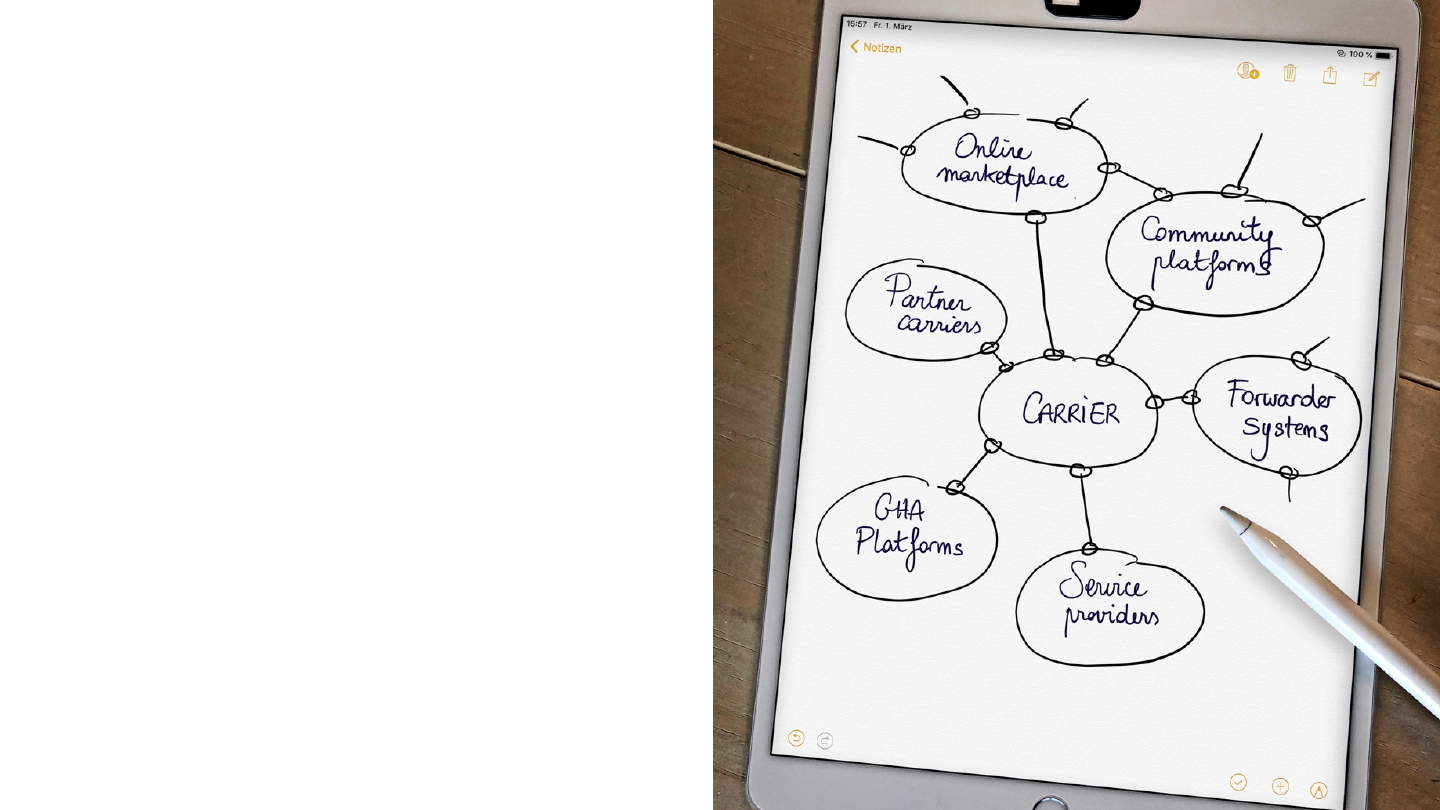 15:57 Fr. 1. März
100 %
Notizen
Online
marketplace
Community
platforms
Partner
carriers
CARRiER
Forwarder
Systems
GHA
Platforms
Service
providers